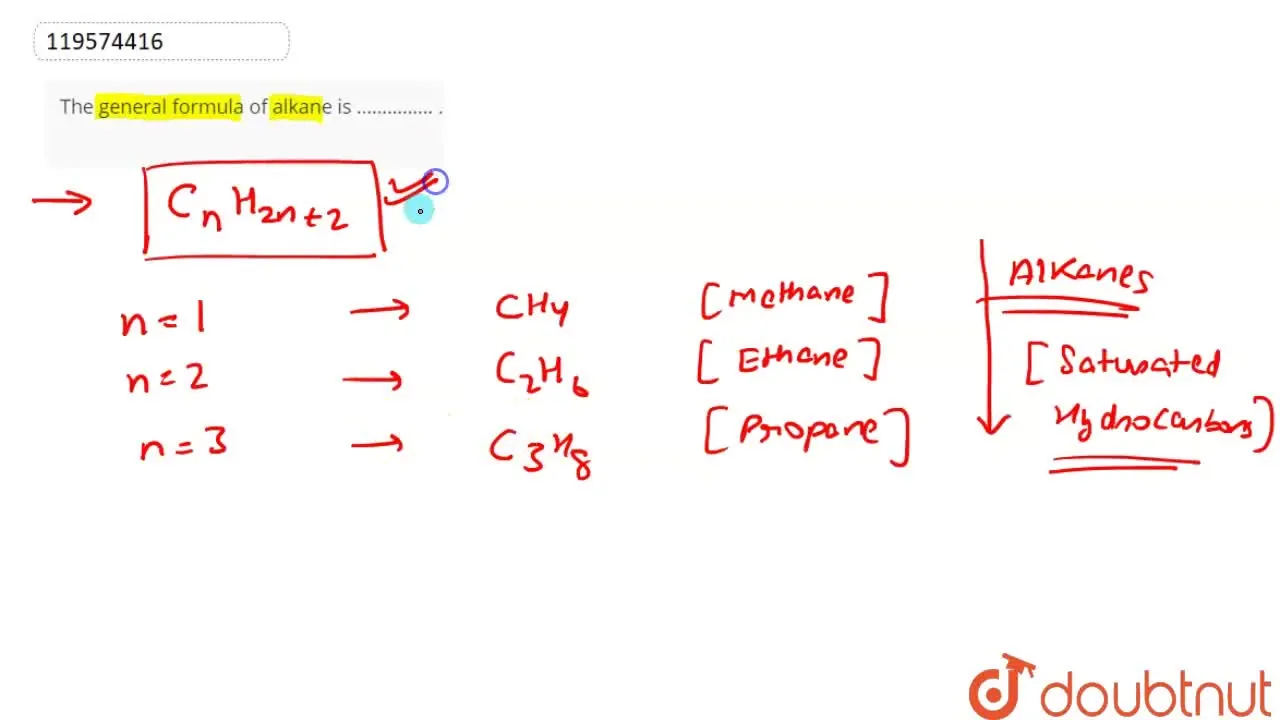 119574416
The general formula of alkane is ............... .
→ CnH2n+2
n = 1 → CH4 [Methane]
n = 2 → C2H6 [Ethane]
n = 3 → C3H8 [Propane]
Alkanes
[Saturated
Hydrocarbons]
doubtnut